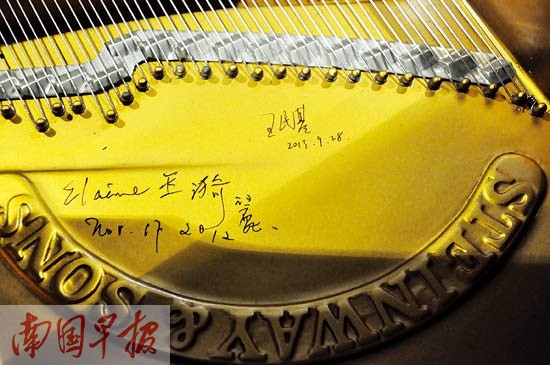 王民基
2013.9.28.
Elaine 巫漪麗
Nov. 17 2012
STEINWAY & SONS
南国早报